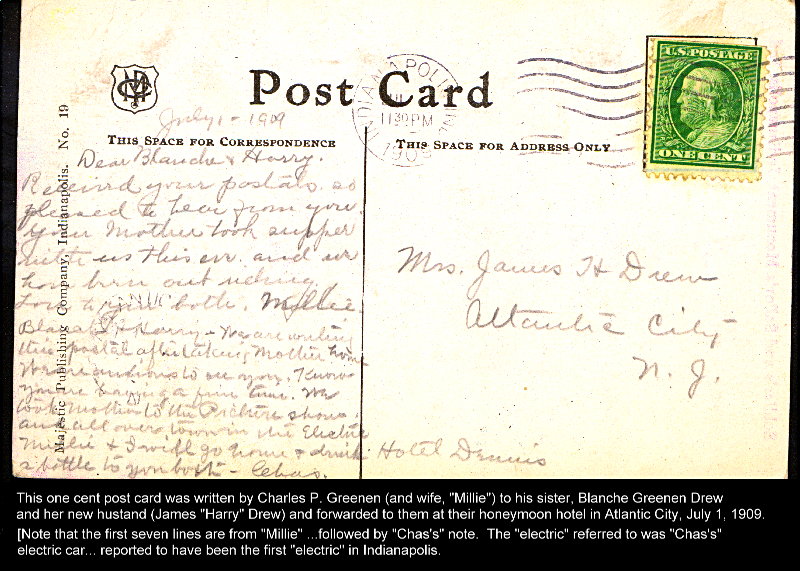 Post Card
INDIANAPOLIS
11 30 PM
1909
U.S. POSTAGE
ONE CENT
July 1 - 1909
THIS SPACE FOR CORRESPONDENCE
THIS SPACE FOR ADDRESS ONLY
Majestic Publishing Company, Indianapolis. No. 19
Dear Blanche & Harry.
Received your postals so
pleased to hear from you.
Your Mother took supper
with us this eve. and we
have been out riding.
Love to you both. Millie.
Blanche & Harry - We are writing
this postal after taking Mother home
We are anxious to see you. Know
you're having a fine time. We
took Mother to the Picture shows
and all over town in the Electric
Millie & I will go home & drink
a bottle to you both - Chas.
Mrs. James H Drew
Atlantic City
N. J.
Hotel Dennis
This one cent post card was written by Charles P. Greenen (and wife, "Millie") to his sister, Blanche Greenen Drew
and her new hustand (James "Harry" Drew) and forwarded to them at their honeymoon hotel in Atlantic City, July 1, 1909.
[Note that the first seven lines are from "Millie" ...followed by "Chas's" note. The "electric" referred to was "Chas's"
electric car... reported to have been the first "electric" in Indianapolis.